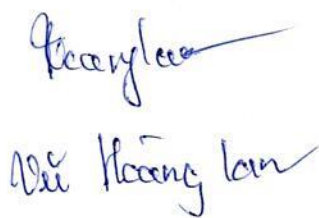 Hoanglan
Vũ Hoàng Lan